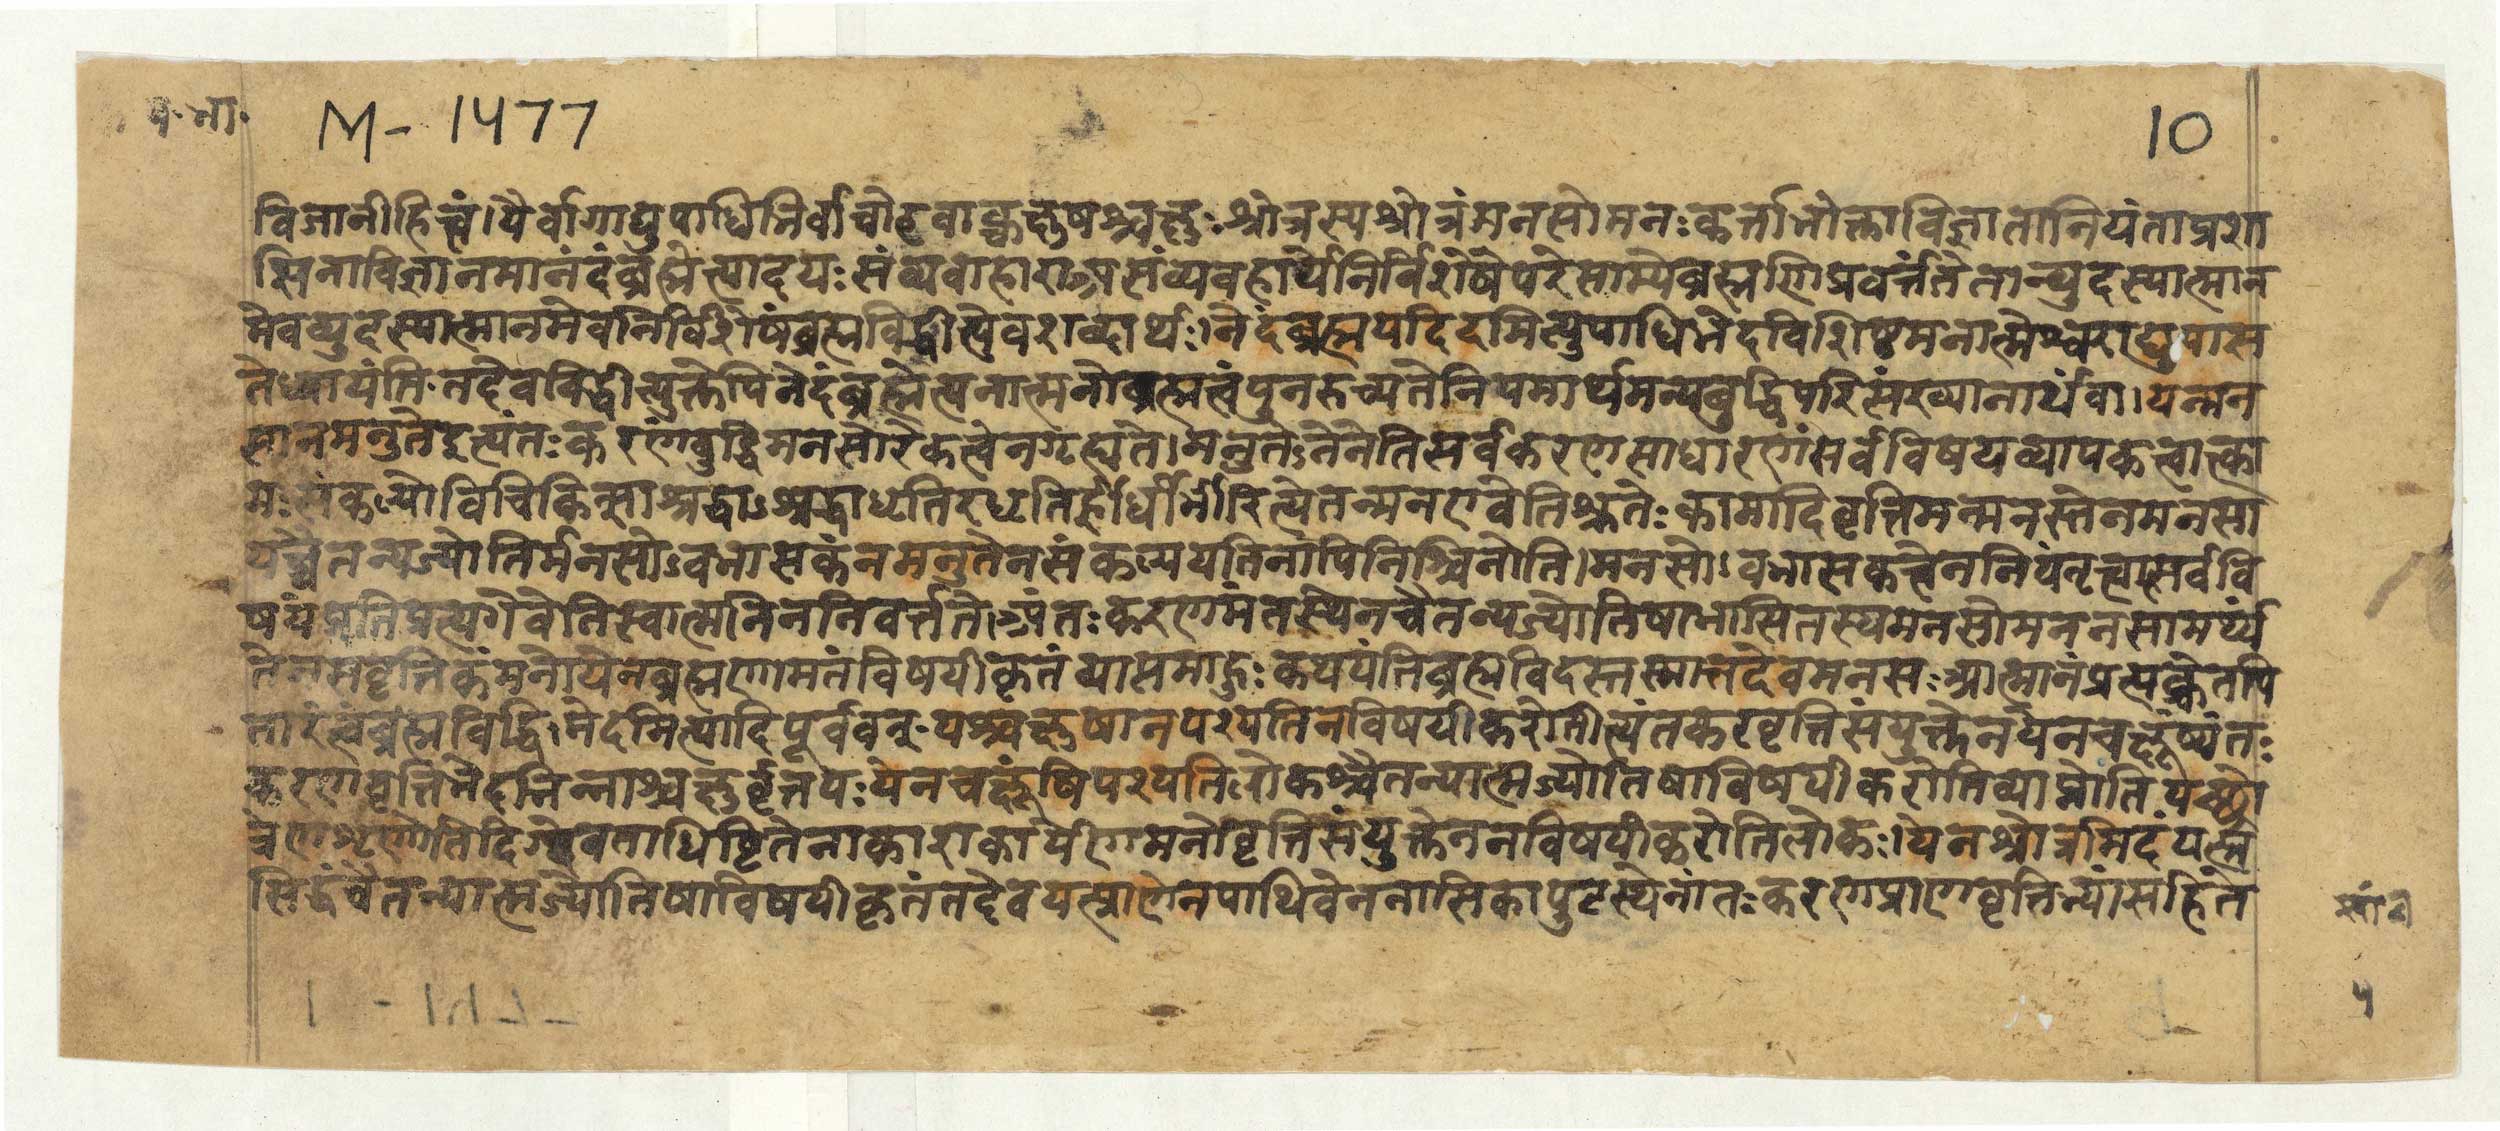 प. भा.
M - 1477
10
विजानीहित्वं। यैर्वागाद्युपाधिभिर्वाचोहवाक्चक्षुषश्चक्षुः श्रोत्रस्यश्रोत्रंमनसोमनः कर्त्ताभोक्ताविज्ञातानियंताप्रशा
सिताविज्ञानमानंदंब्रह्मेत्यादयः संव्यवाहाराअसंव्यवहार्येनिर्विशेषेपरेसाम्येब्रह्मणिप्रवर्त्तंतेतान्व्युदस्यात्मान
मेवव्युदस्यात्मानमेवनिर्विशेषंब्रह्मविद्धीत्येवशब्दार्थः। नेदंब्रह्मयदिदमित्युपाधिभेदविशिष्टमनात्मेश्वराद्युपास
तेध्यायंति तदेवविद्धीत्युक्तेपिनेदंब्रह्मेत्यनात्मनोब्रह्मत्वंपुनरुच्यतेनियमार्थमन्यबुद्धिपरिसंख्यानार्थंवा। यन्मन
सानमनुतेइत्यंतः करणंबुद्धिमनसोरेकत्वेनगृह्यते। मनुतेऽनेनेतिसर्वकरणसाधारणंसर्वविषयव्यापकत्वात्का
मः संकल्पोविचिकित्साश्रद्धाऽश्रद्धाधृतिरधृतिर्ह्रीर्धीर्भीरित्येतन्मनएवेतिश्रुतेः कामादिवृत्तिमन्मनस्तेनमनसा
यच्चैतन्यज्योतिर्मनसोऽवभासकंनमनुतेनसंकल्पयतिनापिनिश्चिनोति। मनसोऽवभासकत्वेननियंतृत्वात्सर्ववि
षयंप्रतिप्रत्यगेवेतिस्वात्मनिननिवर्त्ततेअंतः करणमंतस्थेनचैतन्यज्योतिषाभासितस्यमनसोमननसामर्थ्यं
तेनसवृत्तिकंमनोयेनब्रह्मणामतंविषयीकृतंव्याप्तमाहुः कथयंतिब्रह्मविदस्तस्मात्तदेवमनसः आत्मानंप्रत्यक्चेतयि
तारंत्वंब्रह्मविद्धि। नेदमित्यादिपूर्ववत् यच्चक्षुषानपश्यतिनविषयीकरोतीत्यंतकरवृत्तिसंयुक्तेनयेनचक्षूंष्यंतः
करणवृत्तिभेदभिन्नाश्चक्षुर्वृत्तयः येनचक्षूंषिपश्यतिलोकश्चैतन्यात्मज्योतिषाविषयीकरोतिव्याप्नोति यच्छ्रो
त्रेणनशृणोतिदिग्देवताधिष्ठितेनाकाशकार्येणमनोवृत्तिसंयुक्तेननविषयीकरोतिलोकः। येनश्रोत्रमिदंयत्प्र
सिद्धंचैतन्यात्मज्योतिषाविषयीकृतंतदेवयत्प्राणेनपार्थिवेननासिकापुटस्थेनांतः करणप्राणवृत्तिभ्यांसहित
५